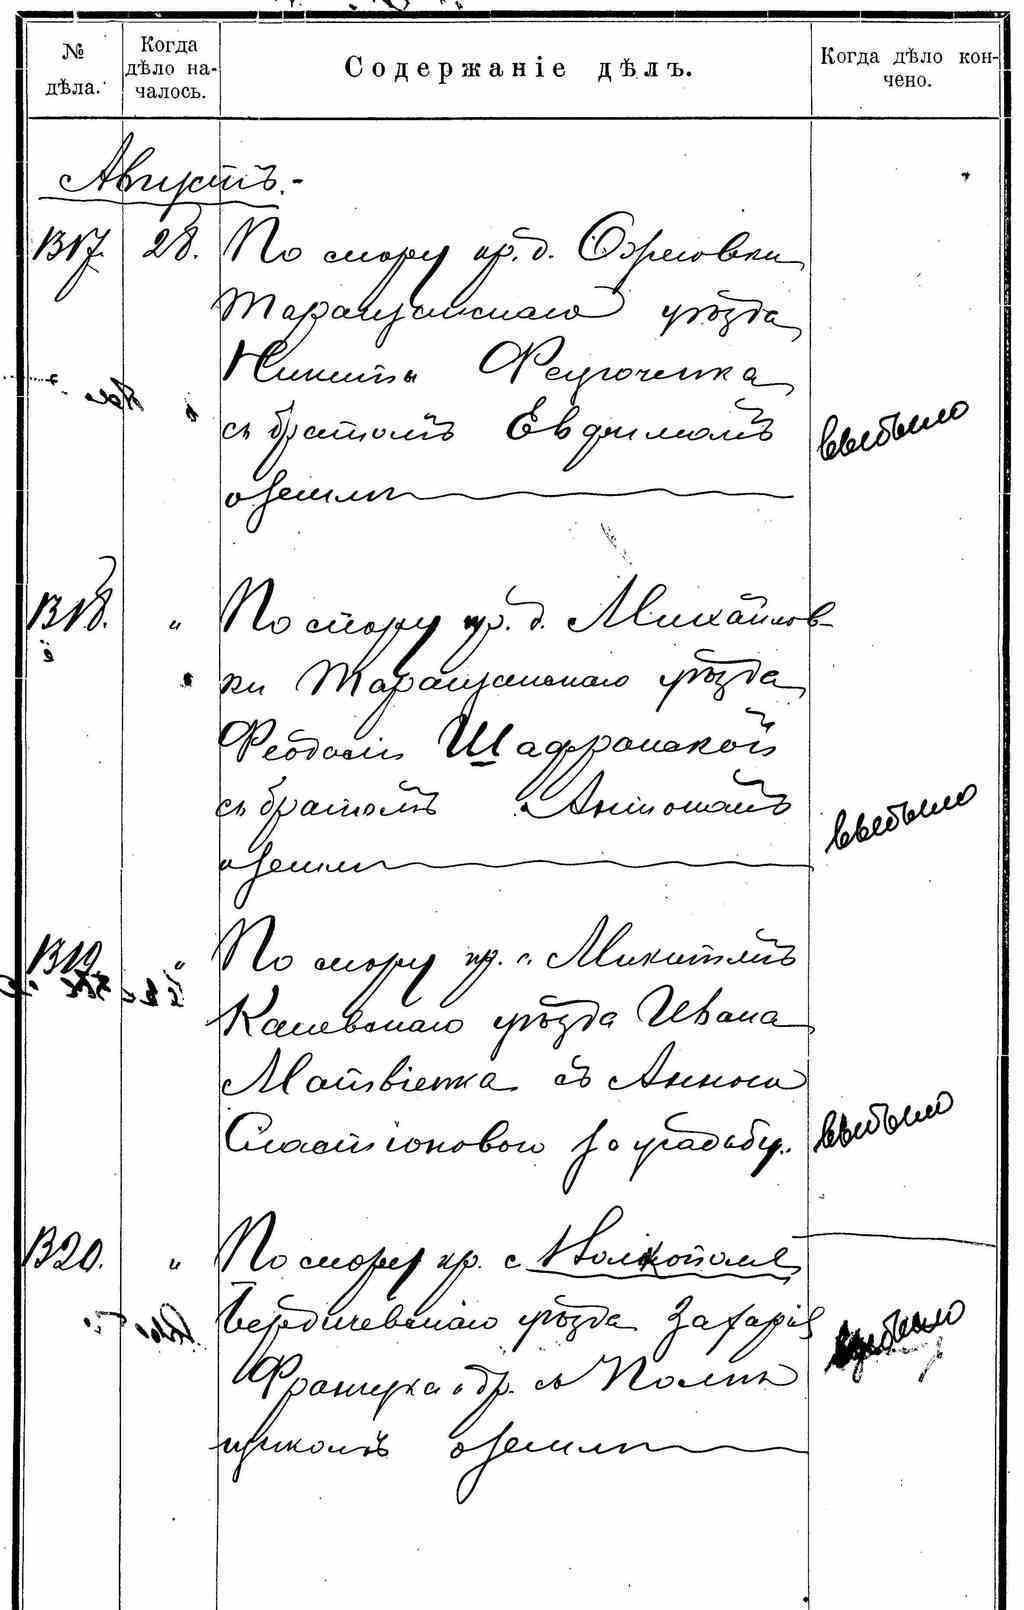 № дѣла.
Когда дѣло началось.
Содержаніе дѣлъ.
Когда дѣло кончено.
Августъ.-
1317. 28. По спору кр. д.
Таращанскаго уѣзда
Никиты
съ братомъ Евфимомъ
о землѣ
выбыло
1318. " По спору кр. д. Михайлов-
ки Таращанскаго уѣзда
Феодосіи Шафранской
съ братомъ Антономъ
о землѣ
выбыло
1319. " По спору кр. с.
Каневскаго уѣзда Ивана
Матвіенка съ Анною
Сластіоновою за усадьбу.
выбыло
1320. " По спору кр. с.
Бердичевскаго уѣзда Захарія
Франчука и др. съ Полищукомъ о землѣ
выбыло